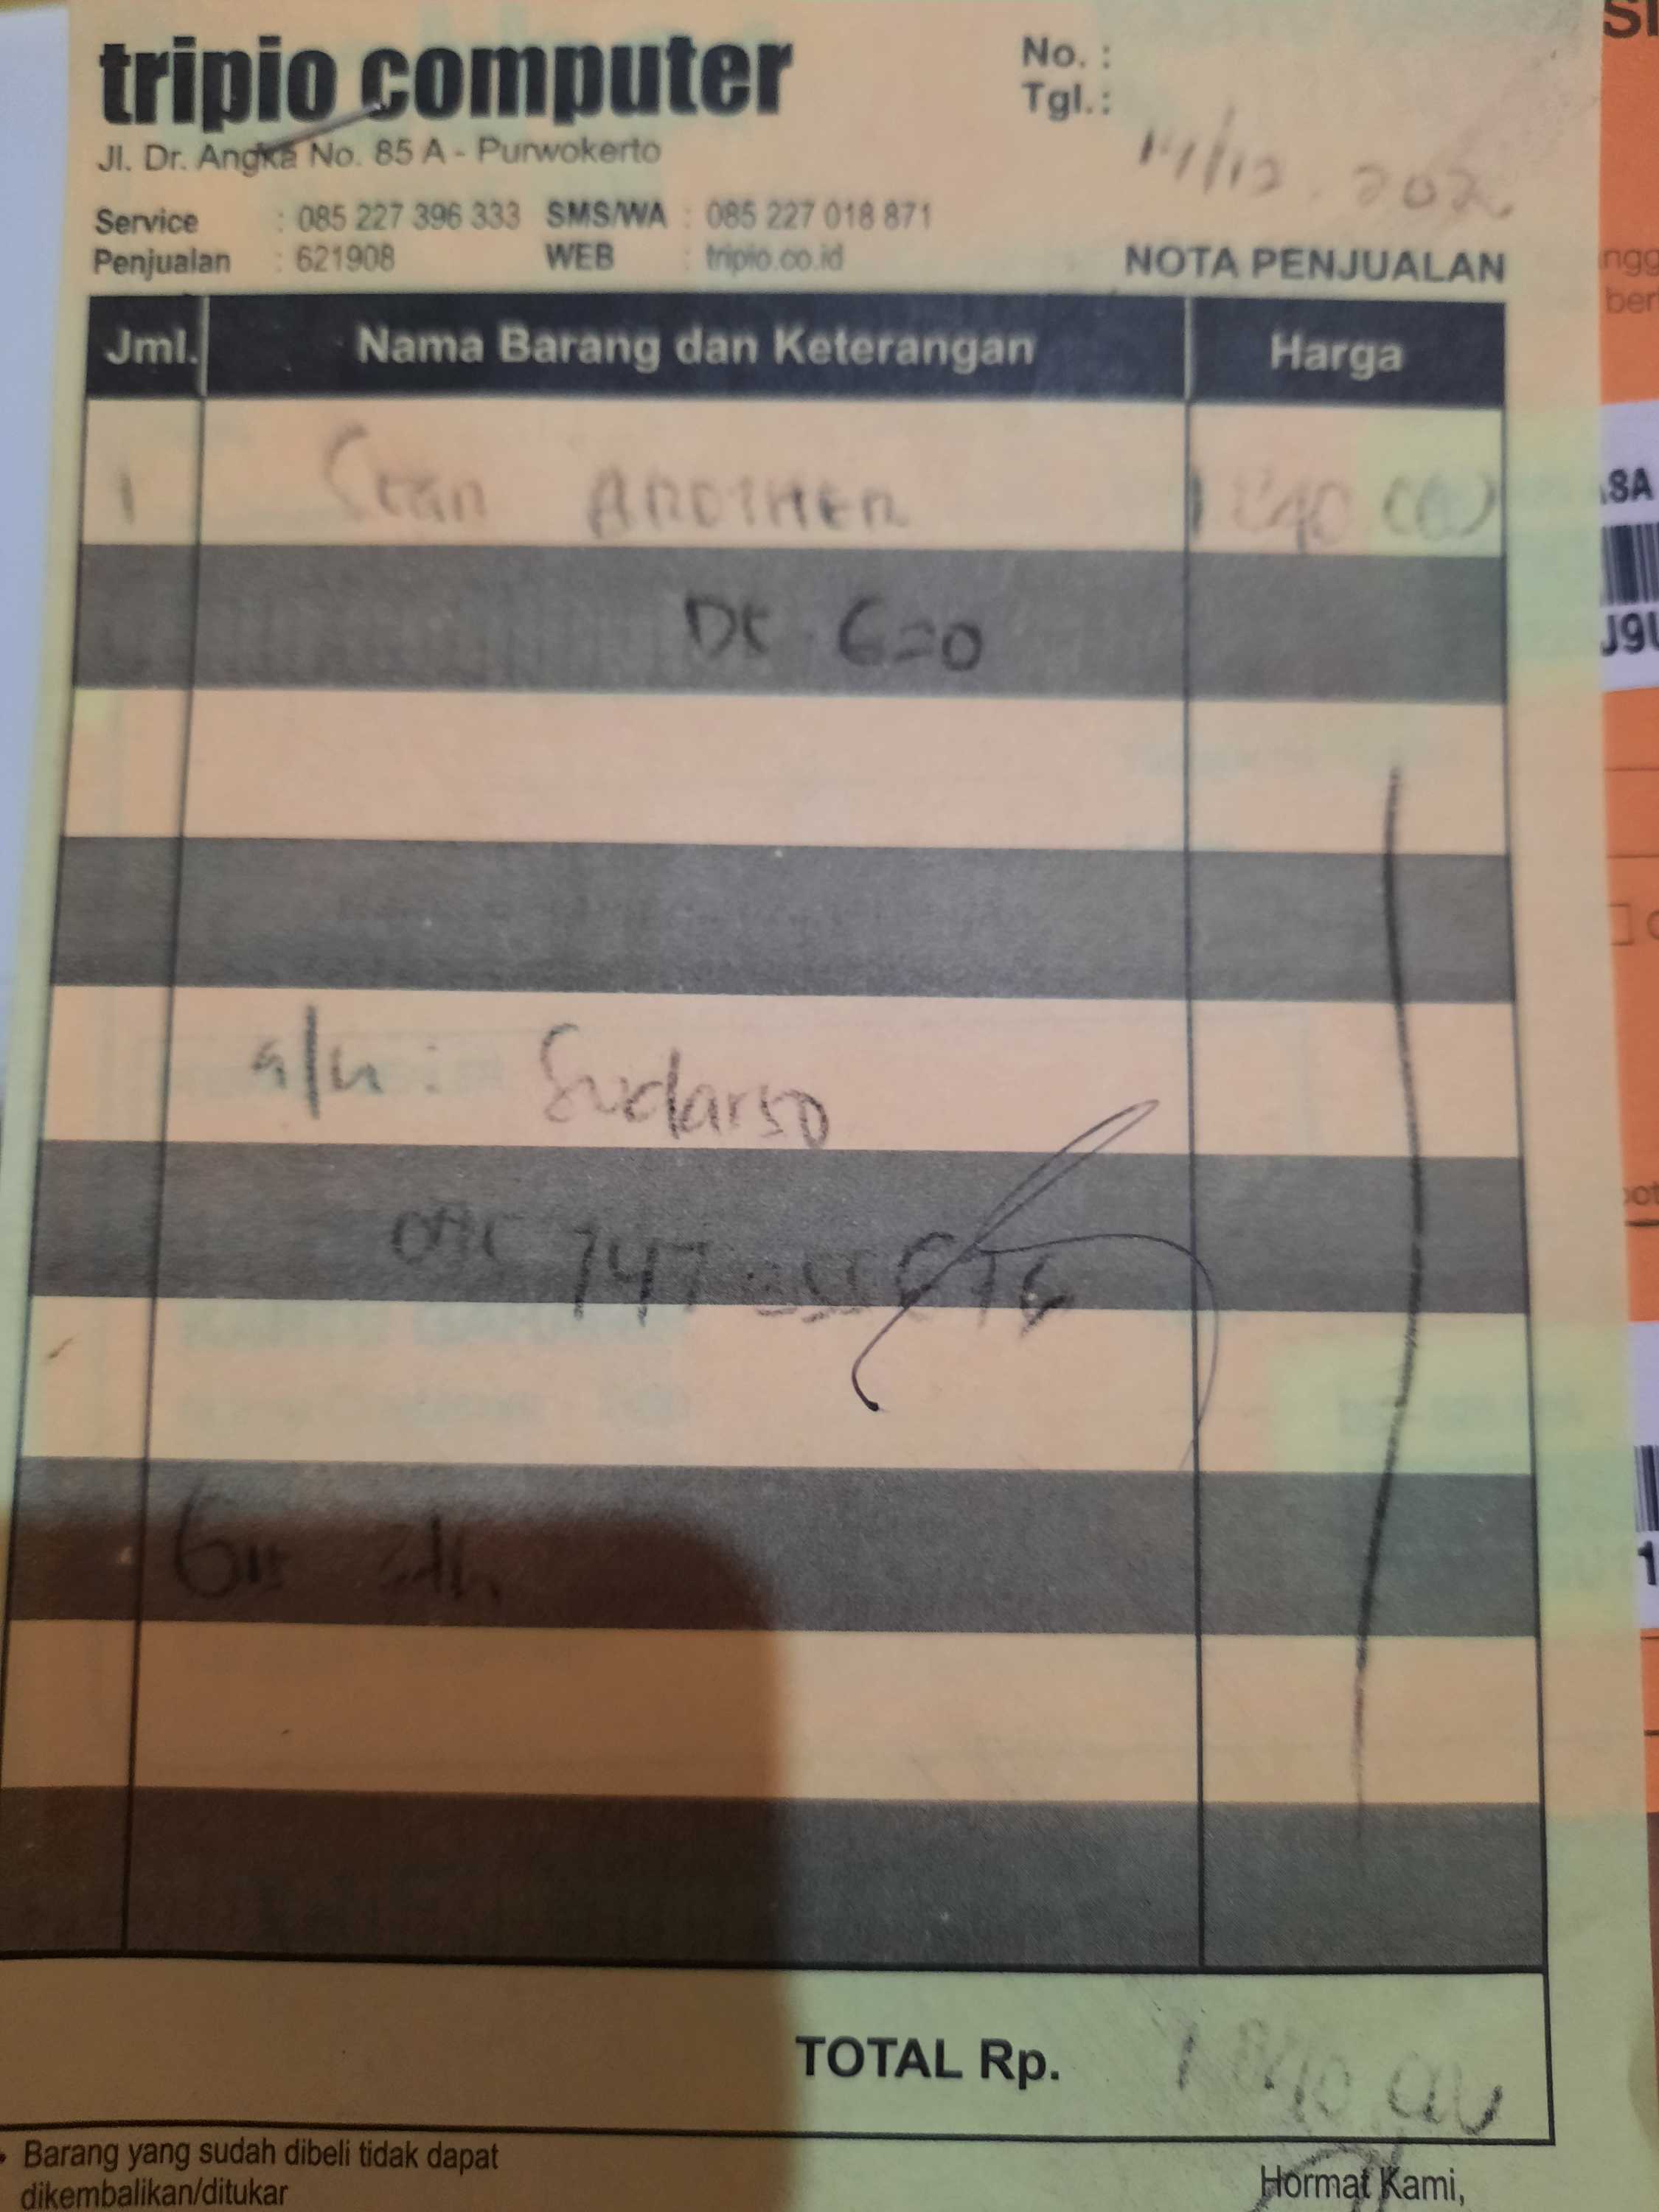 tripio computer
No. :
Tgl.:
Jl. Dr. Angka No. 85 A - Purwokerto
14/12
Service : 085 227 396 333 SMS/WA : 085 227 018 871
Penjualan : 621908 WEB : tripio.co.id
NOTA PENJUALAN
Jml. Nama Barang dan Keterangan Harga
1 Scan BROTHER 1 840
620
a/n : Sudarso
747
TOTAL Rp. 1 840
Barang yang sudah dibeli tidak dapat
dikembalikan/ditukar
Hormat Kami,